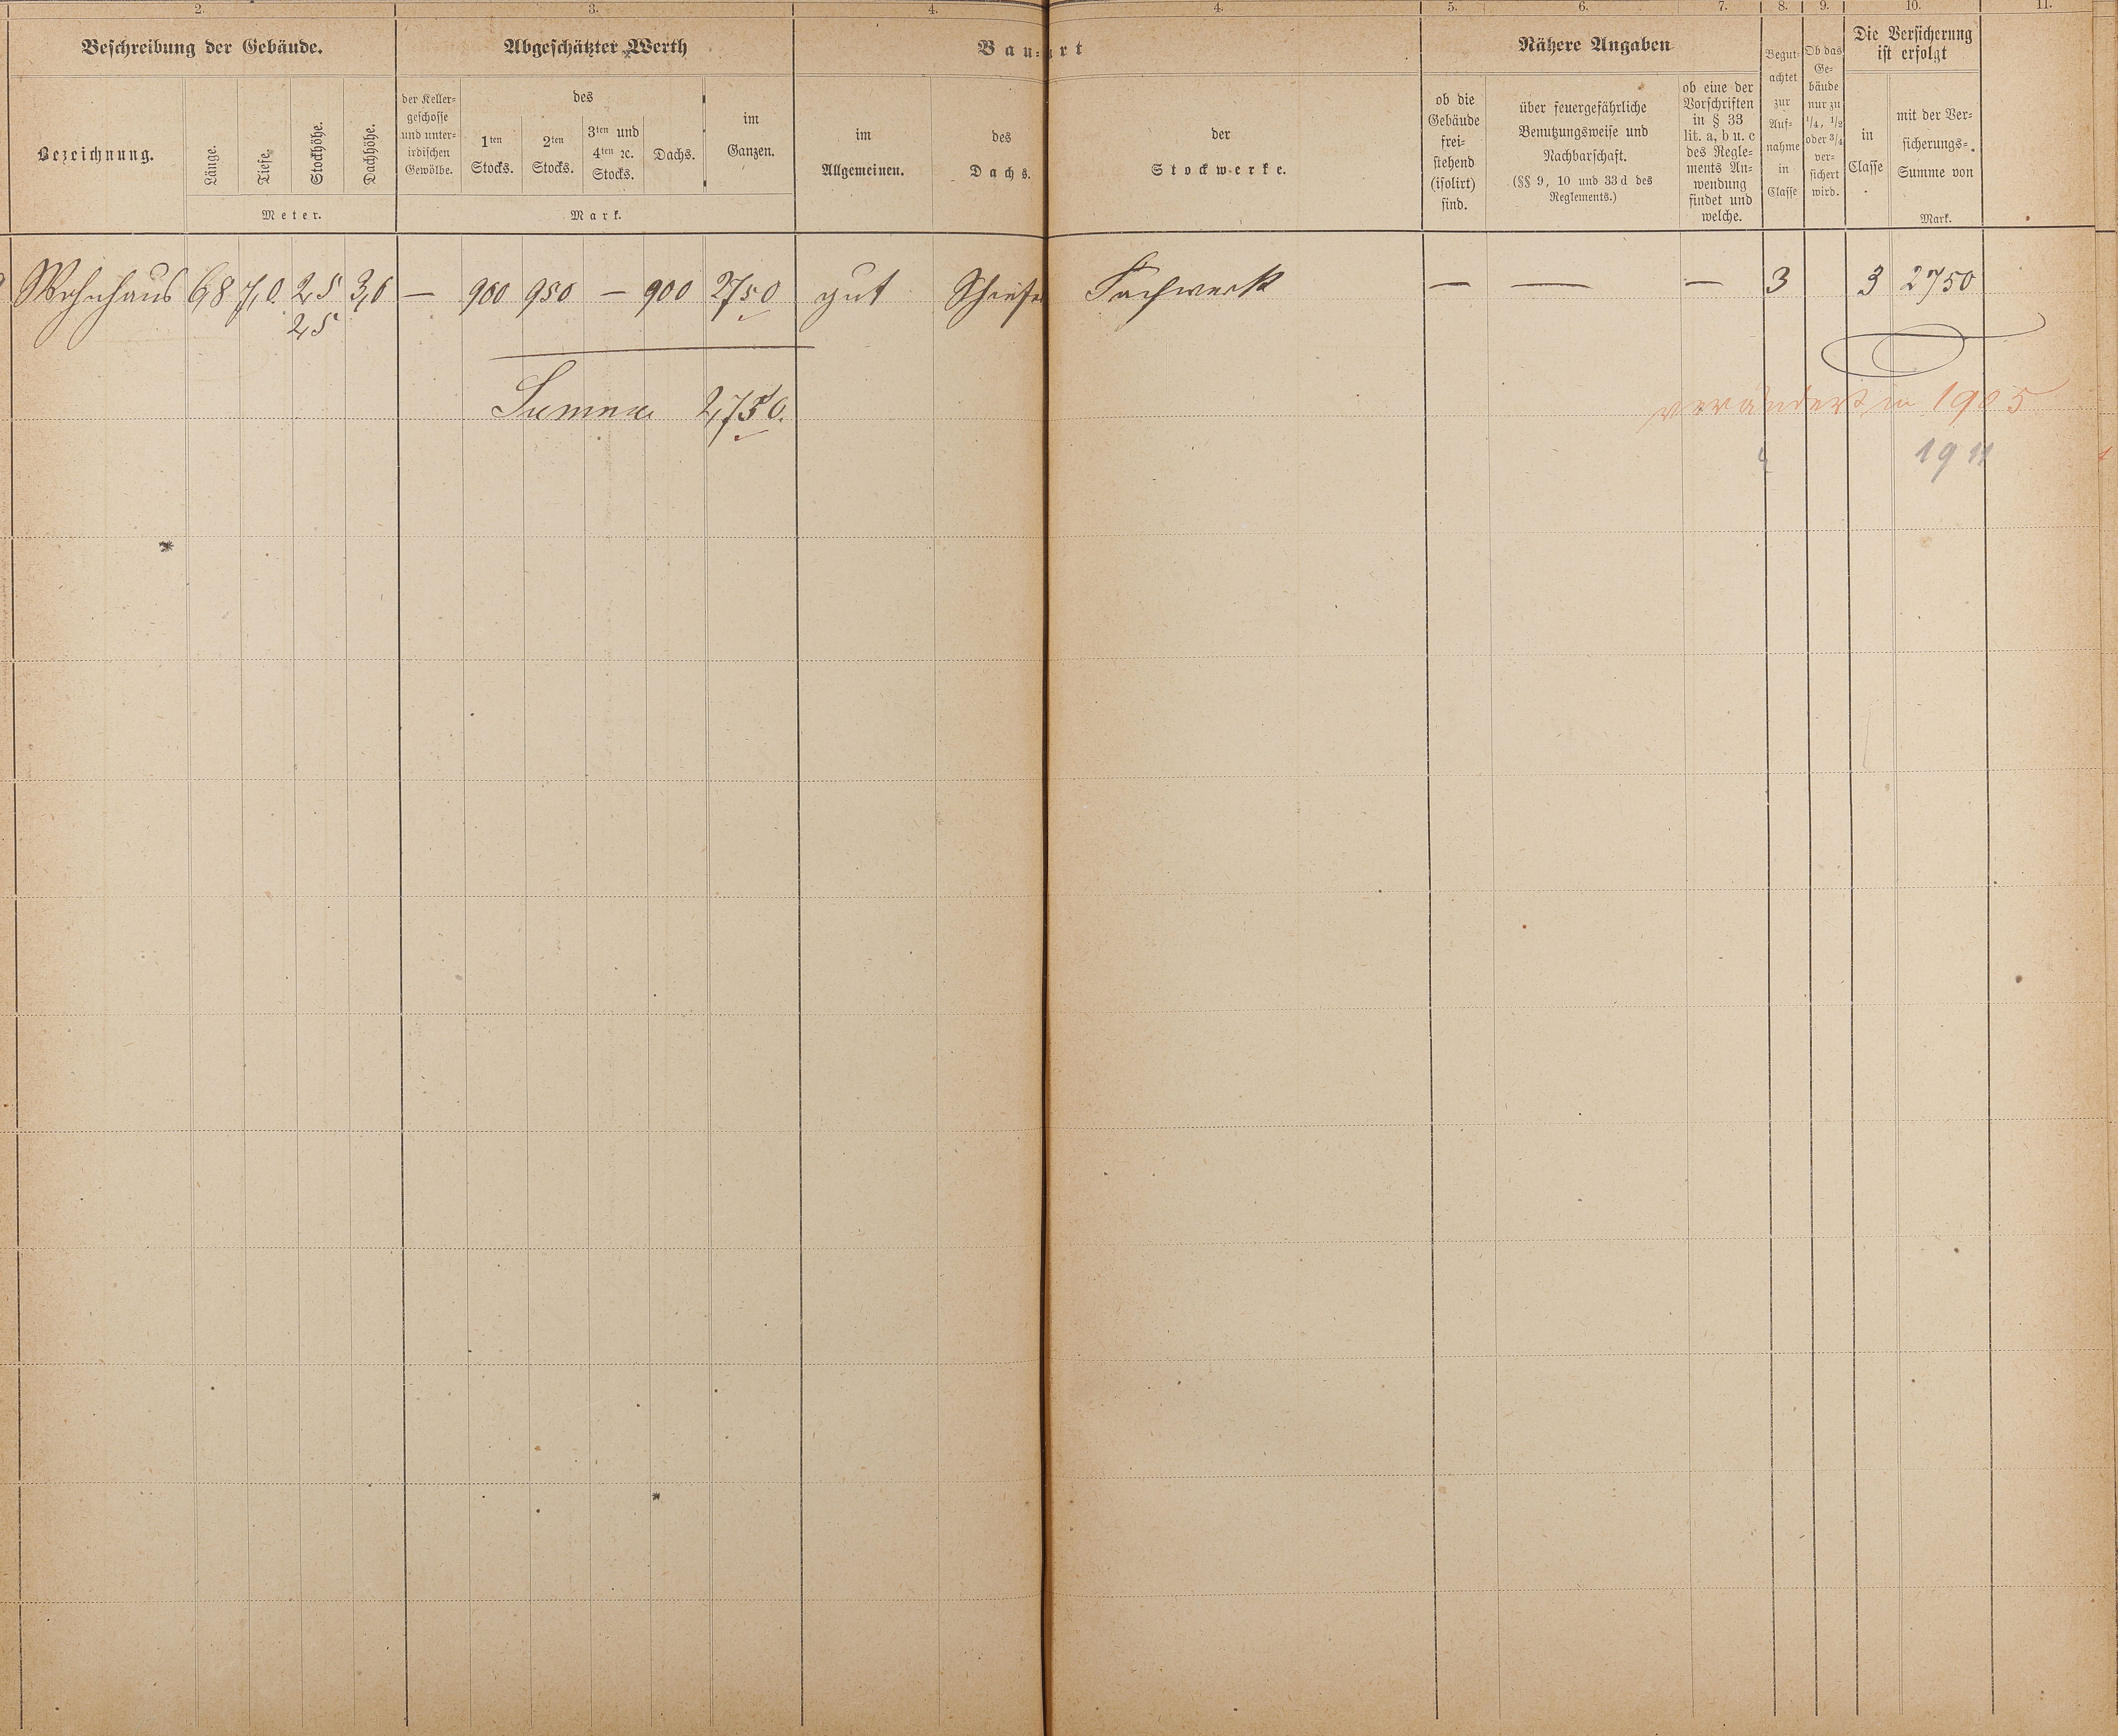 2. 3. 4. 4. 5. 6. 7. 8. 9. 10. 11.
Beschreibung der Gebäude.
Bezeichnung.
Länge.
Tiefe.
Stockhöhe.
Dachhöhe.
Meter.
Abgeschätzter Werth
der Keller-
geschosse
und unter-
irdischen
Gewölbe.
des
1ten
Stocks.
2ten
Stocks.
3ten und
4ten ꝛc.
Stocks.
Dachs.
im
Ganzen.
Mark.
Bau-art
im
Allgemeinen.
des
Dachs.
der
Stockwerke.
Nähere Angaben
ob die
Gebäude
frei-
stehend
(isolirt)
sind.
über feuergefährliche
Benutzungsweise und
Nachbarschaft.
(§§ 9, 10 und 33d des
Reglements.)
ob eine der
Vorschriften
in § 33
lit. a, b u. c
des Regle-
ments An-
wendung
findet und
welche.
Begut-
achtet
zur
Auf-
nahme
in
Classe
Ob das
Ge-
bäude
nur zu
1/4, 1/2
oder 3/4
ver-
sichert
wird.
Die Versicherung
ist erfolgt
in
Classe
mit der Ver-
sicherungs-
Summe von
Mark.
Wohnhaus 6,8 7,0 2,5 3,0 — 900 950 — 900 2750 gut Schiefer Fachwerk — — — 3 3 2750
2,5
Summa 2,750.
verändert in 1905
1911